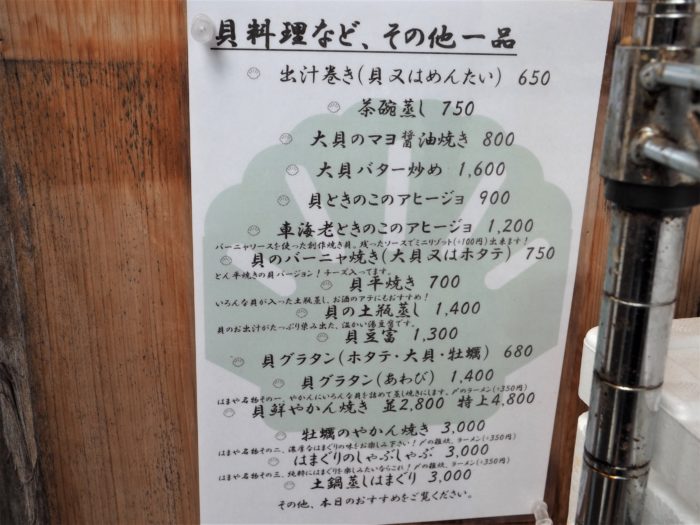 貝料理など、その他一品
出汁巻き(貝又はめんたい) 650
茶碗蒸し 750
大貝のマヨ醤油焼き 800
大貝バター炒め 1,600
貝ときのこのアヒージョ 900
車海老ときのこのアヒージョ 1,200
バーニャソースを使った創作焼き貝。残ったソースでミニリゾット(+100円)出来ます!
貝のバーニャ焼き(大貝又はホタテ) 750
とん平焼きの貝バージョン!チーズ入ってます。
貝平焼き 700
いろんな貝が入った土瓶蒸し、お酒のアテにもおすすめ!
貝の土瓶蒸し 1,400
貝のお出汁がたっぷり染み出た、温かい湯豆富です。
貝豆富 1,300
貝グラタン(ホタテ・大貝・牡蠣) 680
貝グラタン(あわび) 1,400
はまや名物その一、やかんにいろんな貝を詰めて蒸し焼きにします。〆のラーメン(+350円)
貝鮮やかん焼き 並2,800 特上4,800
牡蠣のやかん焼き 3,000
はまや名物その二、濃厚なはまぐりの味をお楽しみ下さい!〆の雑炊、ラーメン(+350円)
はまぐりのしゃぶしゃぶ 3,000
はまや名物その三、純粋にはまぐりを楽しみたいならこれ!〆の雑炊、ラーメン(+350円)
土鍋蒸しはまぐり 3,000
その他、本日のおすすめをご覧ください。